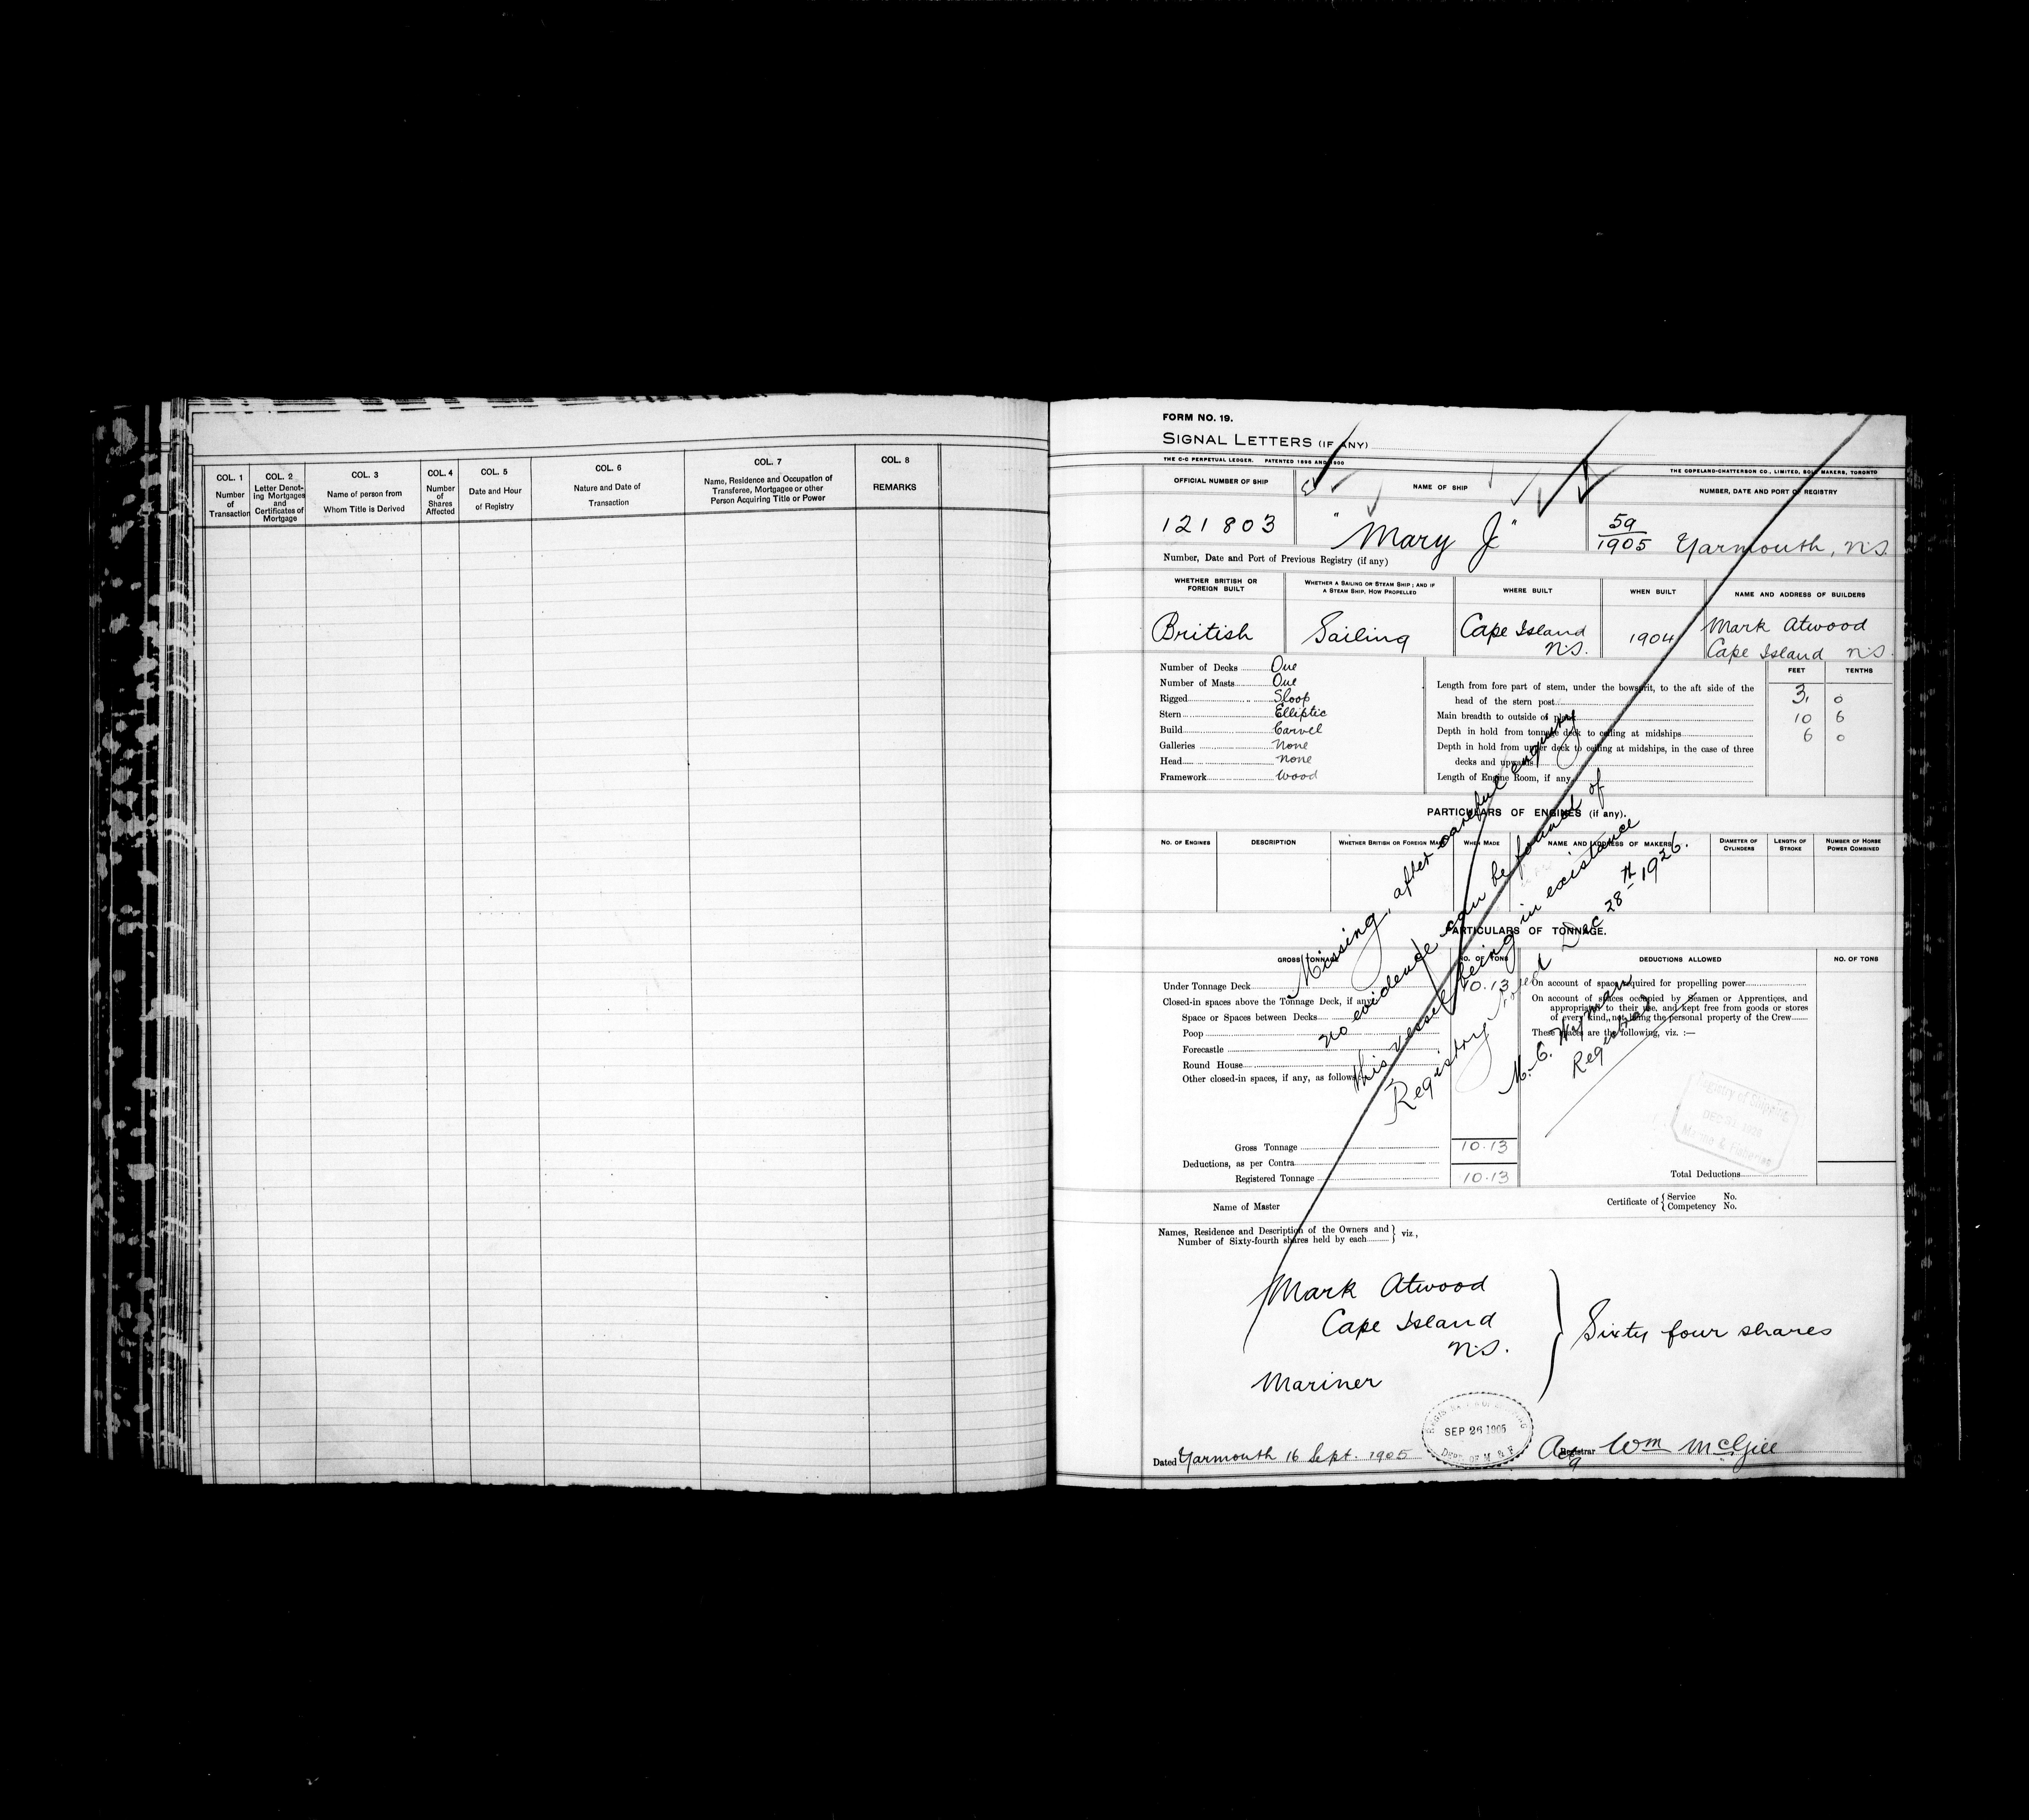 COL. 1
Number
of
Transaction
COL. 2
Letter Denot-
ing Mortgages
and
Certificates of
Mortgage
COL. 3
Name of person from
Whom Title is Derived
COL. 4
Number
of
Shares
Affected
COL. 5
Date and Hour
of Registry
COL. 6
Nature and Date of
Transaction
COL. 7
Name, Residence and Occupation of
Transferee, Mortgagee or other
Person Acquiring Title or Power
COL. 8
REMARKS
FORM NO. 19.
SIGNAL LETTERS (IF ANY)
THE C-C PERPETUAL LEDGER. PATENTED 1896 AND 1900
THE COPELAND-CHATTERSON CO., LIMITED, SOLE MAKERS, TORONTO
OFFICIAL NUMBER OF SHIP
NAME OF SHIP
NUMBER, DATE AND PORT OF REGISTRY
121803
"Mary J"
59/1905 Yarmouth, N.S.
Number, Date and Port of Previous Registry (if any)
WHETHER BRITISH OR
FOREIGN BUILT
WHETHER A SAILING OR STEAM SHIP; AND IF
A STEAM SHIP, HOW PROPELLED
WHERE BUILT
WHEN BUILT
NAME AND ADDRESS OF BUILDERS
British
Sailing
Cape Island
N.S.
1904
Mark Atwood
Cape Island N.S.
Number of Decks One
Number of Masts One
Rigged Sloop
Stern Elliptic
Build Carvel
Galleries None
Head None
Framework Wood
FEET TENTHS
Length from fore part of stem, under the bowsprit, to the aft side of the
head of the stern post 31 0
Main breadth to outside of plank 10 6
Depth in hold from tonnage deck to ceiling at midships 6 0
Depth in hold from upper deck to ceiling at midships, in the case of three
decks and upwards
Length of Engine Room, if any
PARTICULARS OF ENGINES (if any).
NO. OF ENGINES
DESCRIPTION
WHETHER BRITISH OR FOREIGN MADE
WHEN MADE
NAME AND ADDRESS OF MAKERS
DIAMETER OF
CYLINDERS
LENGTH OF
STROKE
NUMBER OF HORSE
POWER COMBINED
Missing, after careful enquiry
no evidence can be found of
this vessel being in existance
Registry closed Dec 28th 1926.
Wyman
Registrar
PARTICULARS OF TONNAGE.
GROSS TONNAGE
NO. OF TONS
DEDUCTIONS ALLOWED
NO. OF TONS
Under Tonnage Deck 10.13
Closed-in spaces above the Tonnage Deck, if any
Space or Spaces between Decks
Poop
Forecastle
Round House
Other closed-in spaces, if any, as follows
Gross Tonnage 10.13
Deductions, as per Contra
Registered Tonnage 10.13
On account of space required for propelling power
On account of spaces occupied by Seamen or Apprentices, and
appropriated to their use, and kept free from goods or stores
of every kind, not being the personal property of the Crew
These spaces are the following, viz. :—
Registry of Shipping
DEC 31 1926
Marine & Fisheries
Total Deductions
Name of Master
Certificate of { Service No.
Competency No.
Names, Residence and Description of the Owners and
Number of Sixty-fourth shares held by each } viz.,
Mark Atwood
Cape Island
N.S.
Mariner
Sixty four shares
SEP 26 1905
DEPT. OF M & F
Dated Yarmouth 16 Sept. 1905
Actg Registrar Wm McGill